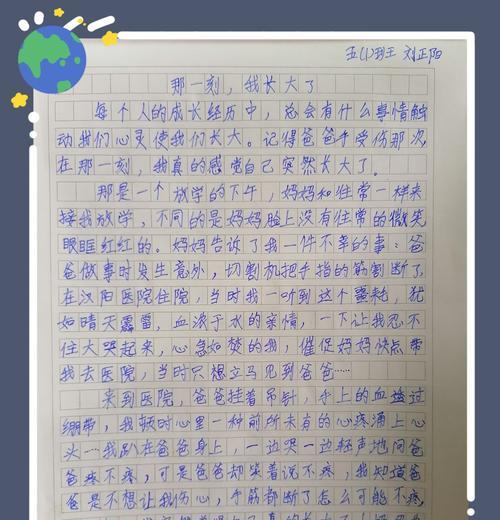 五(1)班 刘正阳
那一刻，我长大了
每个人的成长经历中，总会有什么事情触
动我们心灵使我们长大。记得爸爸手受伤那次
在那一刻，我真的感觉自己突然长大了。
那是一个放学的下午，妈妈和住常一样来
接我放学，不同的是妈妈脸上没有住常的微笑
眼眶红红的。妈妈告诉了我一件不幸的事：爸
爸做事时发生意外，切割机把手指的筋割断了
在汉阳医院住院，当时我一听到这个噩耗，犹
如晴天霹雷，血浓于水的亲情，一下让我忍不
住大哭起来，心急如焚的我，催促妈妈快点带
我去医院，当时只想立马见到爸爸……
来到医院，爸爸挂着吊针，手上的血透过
绷带，我顿时心里一种前所未有的心疼涌上心
头…我趴在爸爸身上，一边哭一边轻声地问爸
爸疼不疼，可是爸爸却笑着说不疼，我知道爸
爸是不想让我伤心，手筋都断了怎么可能不疼，